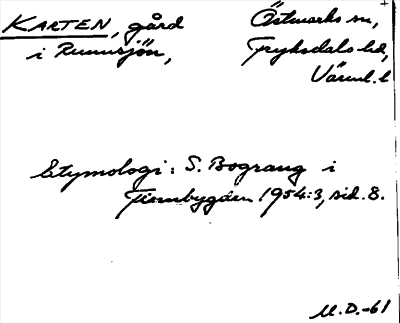 KARTEN, gård Östmarks sn,
i Runnsjön, Fryksdals hd,
Värml. l
Etymologi: S. Bograng i
Finnbygden 1954:3, sid. 8.
M.D.-61